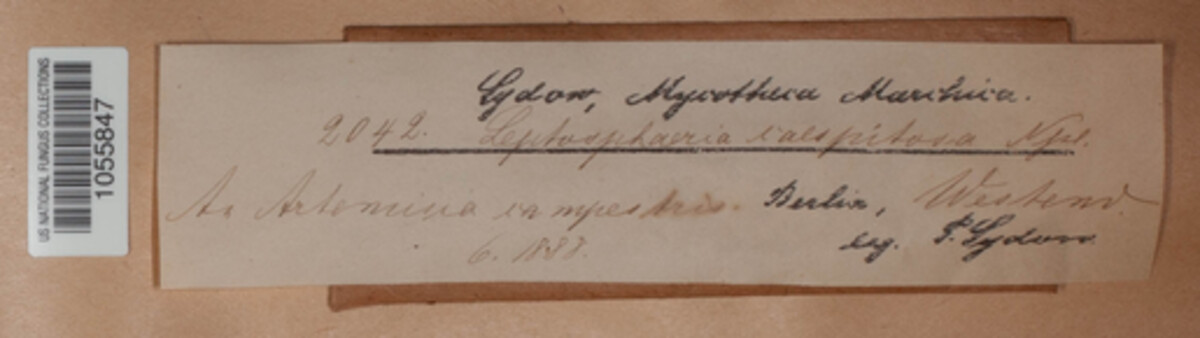 US NATIONAL FUNGUS COLLECTIONS
1055847
Sydow, Mycotheca Marchica.
2042. Leptosphaeria caespitosa Nssl.
An Artemisia campestris. Berlin, Westend.
6. 1888. leg. P. Sydow